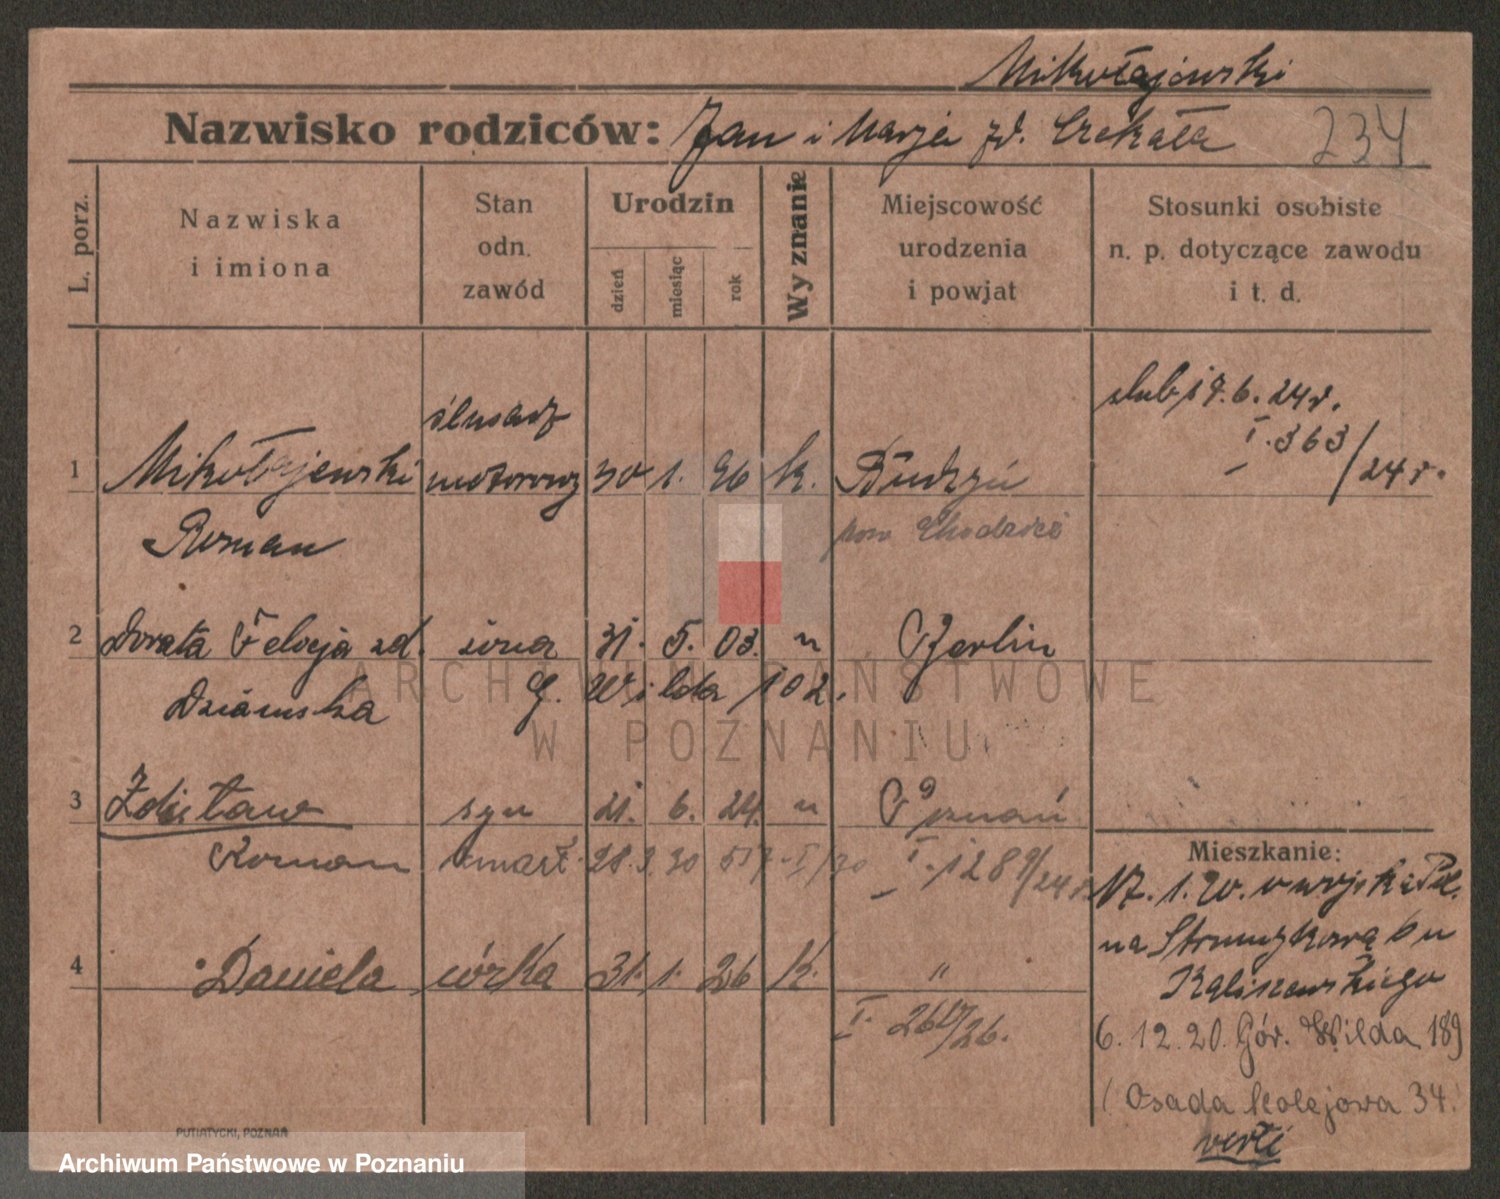 Mikołajewski
Nazwisko rodziców: Jan i Marja zd. Czekała 234
L. porz.
Nazwiska i imiona
Stan odn. zawód
Urodzin
dzień
miesiąc
rok
Wyznanie
Miejscowość urodzenia i powjat
Stosunki osobiste n. p. dotyczące zawodu i t. d.
ślub 17. 6. 24 r.
I. 363/24 r.
ślusarz
1 Mikołajewski motorowy 30 1. 96 k. Budzyń
Roman pow Chodzież
2 Dorota Felicja zd. żona 31. 5. 03. " Berlin
Dziamska G. Wilda 102.
3 Zdzisław syn 21. 6. 24. " Poznań
Roman zmarł 28. 3. 30 I/30 I. 1289/24 r.
4 Daniela córka 31. 1. 26 k. "
I. 26
/26.
Mieszkanie:
17. 1. 20. w wojsku Pol.
na
6. 12. 20. Gór. Wilda 189
(Osada kolejowa 34.
verte
PUTIATYCKI, POZNAŃ
ARCHIWUM PAŃSTWOWE
W POZNANIU
Archiwum Państwowe w Poznaniu